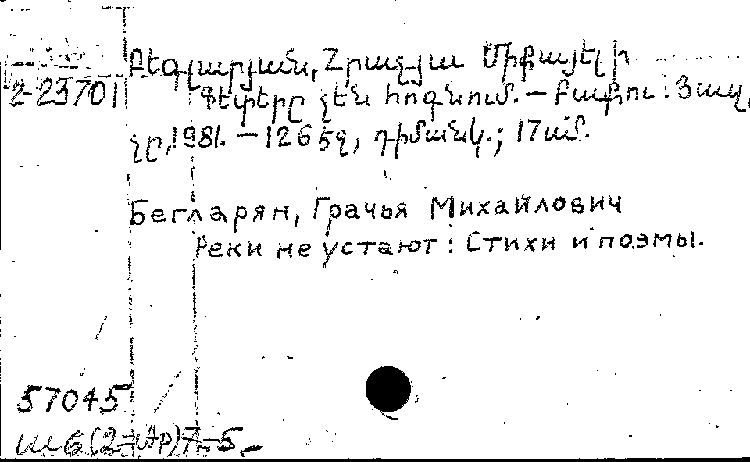 Բեգլարյան, Հրաչյա Միքայելի
2-23701
Գետերը չեն հոգնում. – Բաքու : Յազ,
չը, 1981. – 126 էջ, դիմանկ.; 17սմ.
Бегларян, Грачья Михайлович
Реки не устают : Стихи и поэмы.
57045